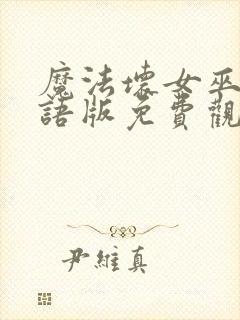 魔法壞女巫
語版免費觀
尹維真